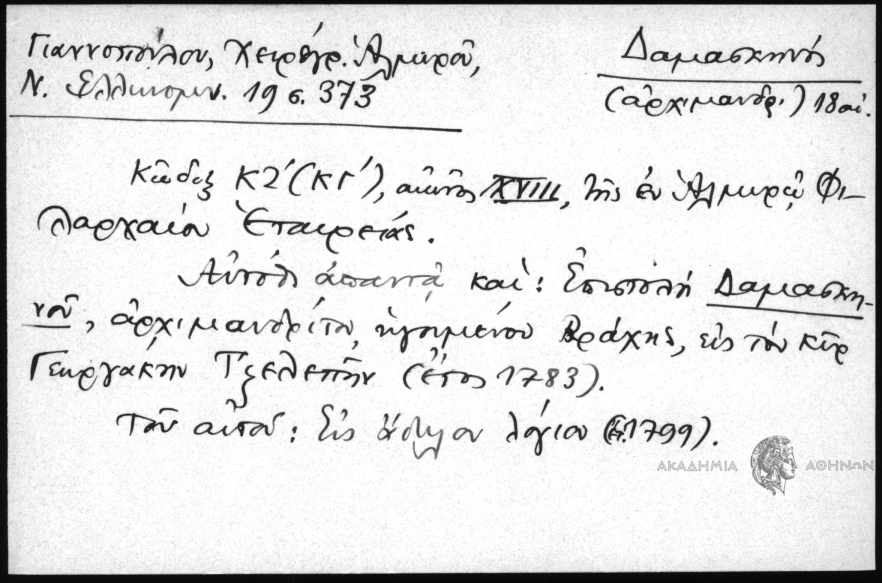 Γιαννοπούλου, Χειρόγρ. Ἁλμυροῦ,
Ν. Ἑλληνομν. 19 σ. 373
Δαμασκηνός
(ἀρχιμανδρ.) 18 αἰ.
Κῶδιξ Κ2΄(ΚΓ΄), αἰῶνος XVIII, τῆς ἐν Ἁλμυρῷ Φι-
λαρχαίου Ἑταιρείας.
Αὐτόθι ἀπαντᾷ καὶ: Ἐπιστολὴ Δαμασκη-
νοῦ, ἀρχιμανδρίτου, ἡγουμένου Βράχης, εἰς τὸν κὺρ
Γεωργάκην Τζελεπῆν (ἔτος 1783).
Τοῦ αὐτοῦ: Εἰς ἄδηλον λόγιον (ἔ. 1799).
ΑΚΑΔΗΜΙΑ ΑΘΗΝΩΝ